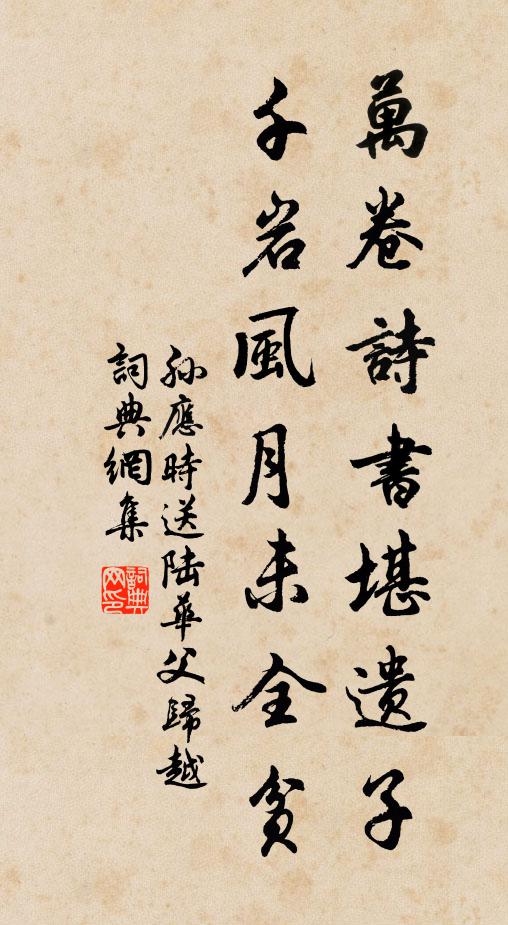 萬卷詩書堪遺子
千岩風月未全貧
孫應時送陆華父歸越
詞典網集
詞典网印